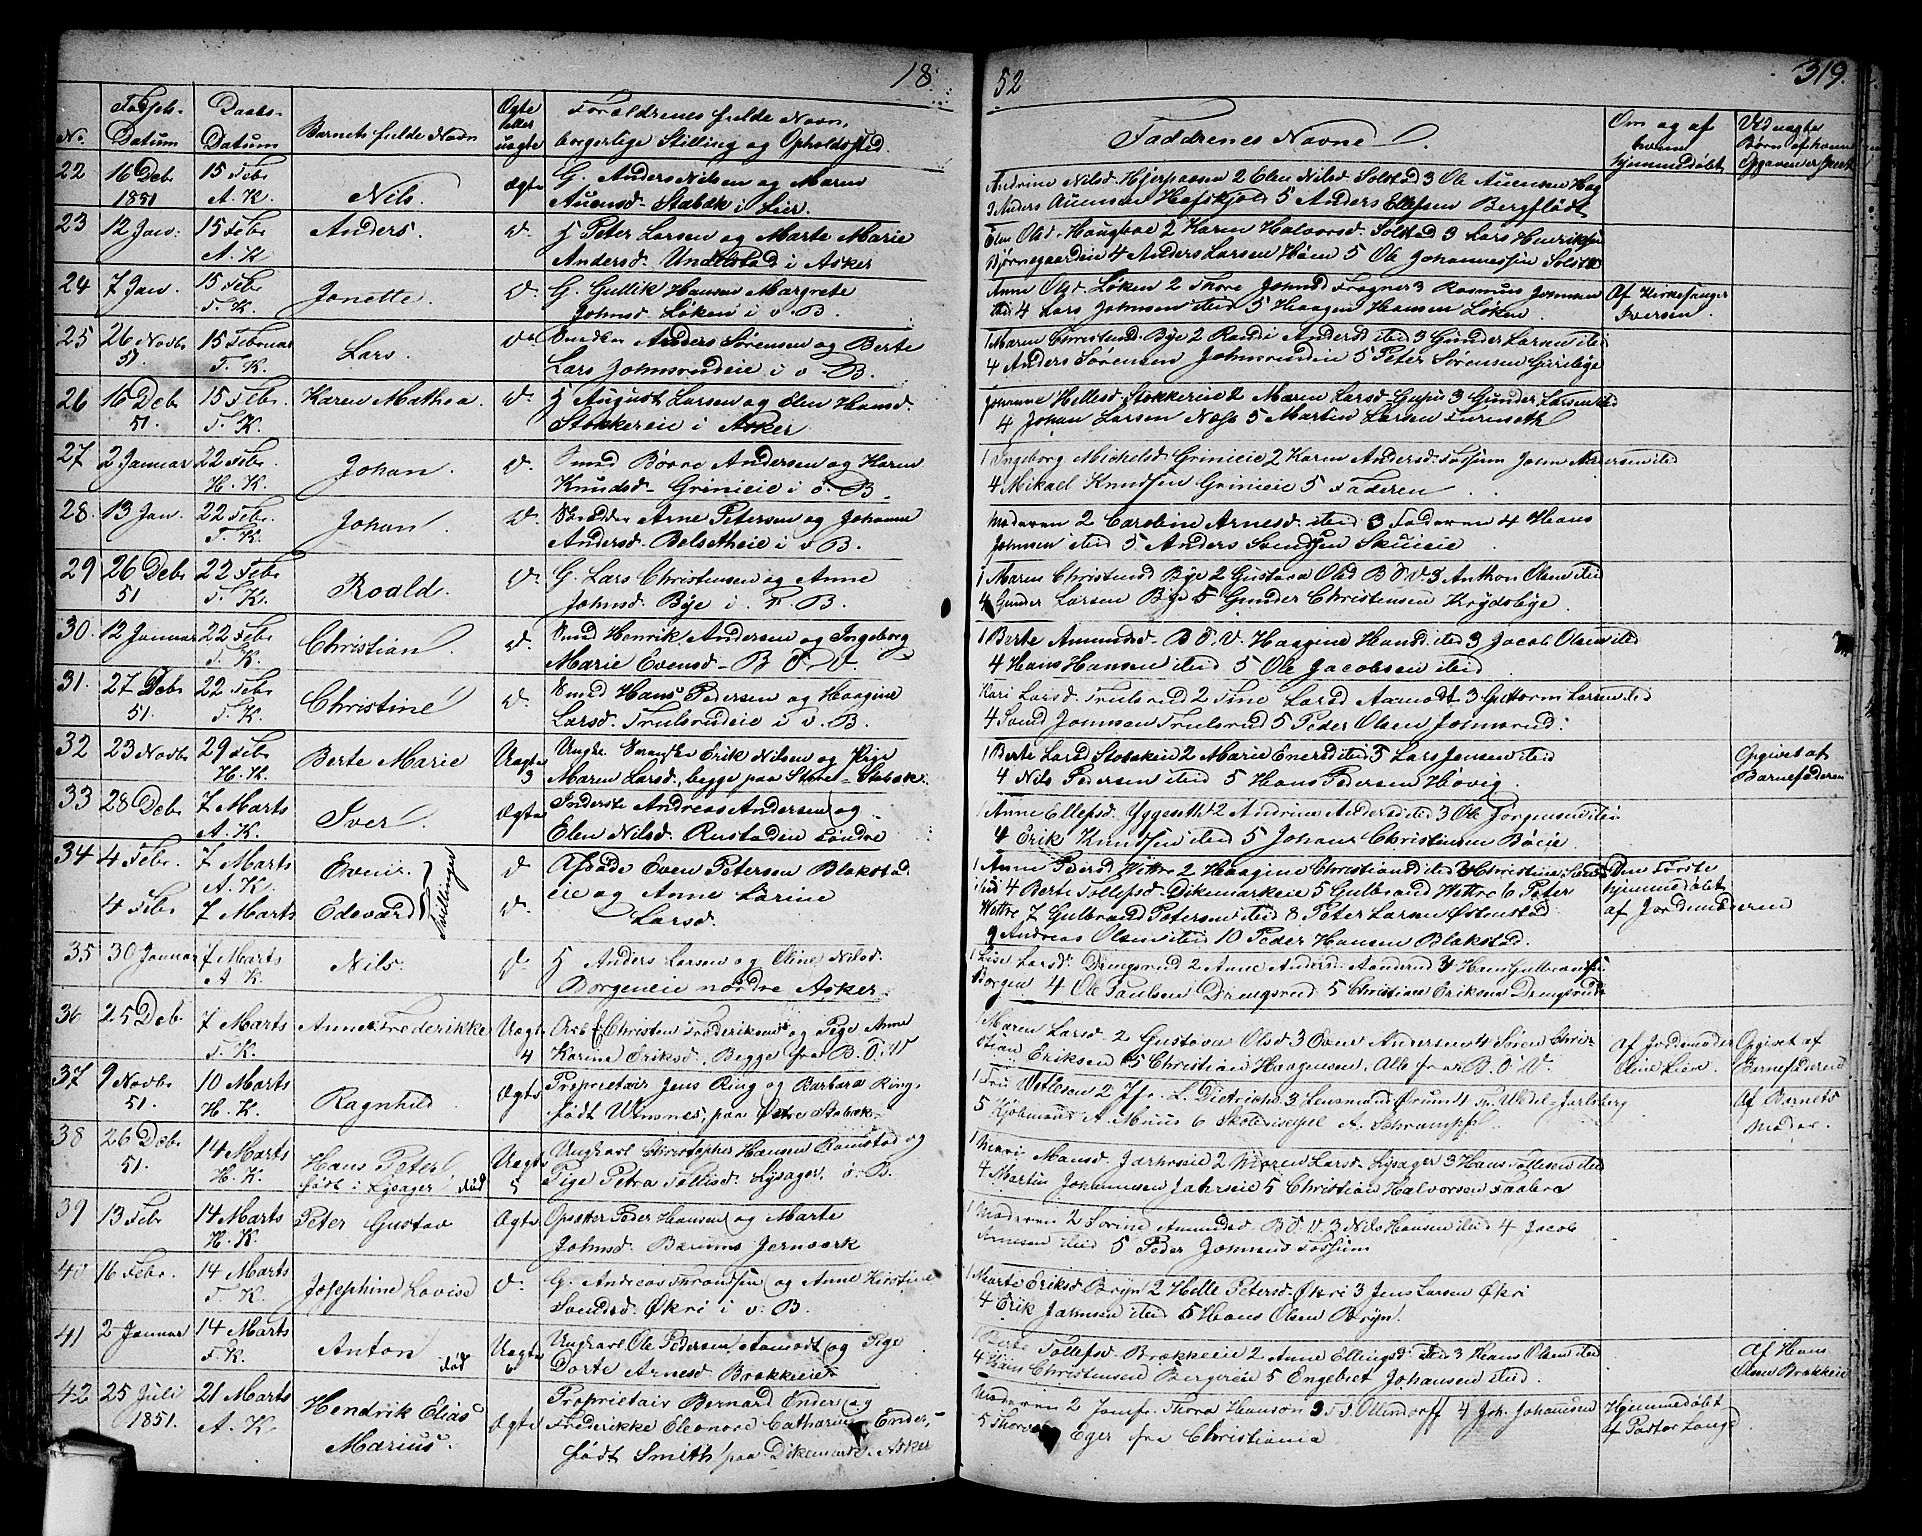 18
52
319.
No.
Fødsels-
Datum
Daabs-
Datum
Barnets fulde Navn
Ægte
eller
uægte
Forældrenes fulde Navn,
borgerlige Stilling og Opholdssted.
Faddrenes Navne
Om og af
hvem
hjemmedøbt
Ved uægte
Børn af hvem
Opgaven er skeet
22
16 Decb
1851
15 Feb
A. K.
Nils.
Ægte
G. Anders Nilsen og Maren
Auensd. Stabæk i Lier.
Andrine Nilsd. Hjerpaasen 2 Elen Nilsd. Solstad 3 Ole Auensen Hag
Anders Auensen Hafskjold 5 Anders Ellefsen Bergflødt
23
12 Jan.
15 Feb
A. K
Anders.
d.
Peter Larsen og Marte Marie
Andersd. Undelstad i Asker
Elen Olsd. Haugboe 2 Karen Halvorsd. Solstad 3 Lars Henriksen
Bjørnegaardeie 4 Anders Larsen Høen 5 Ole Johannessen Solstad
24
7 Jan.
15 Feb
T. K.
Jonette.
d.
G. Gullik Hansen Margrete
Johnsd. Løken i v. B.
Anne Olsd. Løken 2 Thore Johnsd Frogner 3 Rasmus Johnsen
sted 4 Lars Johnsen sted 5 Haagen Hansen Løken.
Af Kirkesanger
Iversen.
25
26 Novb
51.
15 Februar
T. K.
Lars.
d.
Snedker Anders Sørensen og Berte
Lars Johnsrudeie i v. B.
1 Maren Christensd. Bye 2 Randi Andersd sted 3 Gunder Larsen sted
4 Anders Sørensen Johnsrudeie 5 Peter Sørensen
26
16 Decb
51.
15 Feb.
T. K.
Karen Mathea.
d.
August Larsen og Elen Hansd.
Stokkereie i Asker
Johanne Hellesd. Stokkereie 2 Maren Larsd. 3 Gunder Larsen sted
4 Johan Larsen Næss 5 Martin Larsen
27
2 Januar
22 Feb
H. K.
Johan.
d.
Smed Børre Andersen og Karen
Knudsd. Grinieie i ø. B.
1 Ingeborg Mickelsd Grinieie 2 Karen Andersd. Fossum John Andersen sted
4 Mikael Knudsen Grinieie 5 Faderen
28.
13 Jan.
22 Feb
T. K.
Johan.
d.
Skrædder Arne Petersen og Johanne
Andersd. Belsetheie i v B.
Moderen 2 Caroline Arnesd. sted 3 Faderen 4 Hans
Johnsen sted 5 Anders Svendsen Skuieie
29
26 Decb
51
22 Feb
T. K.
Roald.
d.
G. Lars Christensen og Anne
Johnsd. Bye i. v. B.
1 Maren Christensd Bye 2 Gustava Olsd B. V. 3 Anthon Olsen sted
4 Gunder Larsen Bye 5 Gunder Christensen
30.
12 Januar
22 Feb
T. K.
Christian.
d.
Smed Henrik Andersen og Ingeborg
Marie Evensd. B V.
1 Berte Amundsd. B V. Haagine Hansd. sted 3 Jacob Olsen sted
4 Hans Hansen sted 5 Ole Jacobsen sted
31.
27 Decb
51.
22 Feb
T. K.
Christine
d.
Smed Hans Pedersen og Haagine
Larsd. Trulsrudeie i v. B.
Kari Larsd. Trulsrud 2 Tine Larsd Aamodt 3 Guttorm Larsen sted
4 Svend Johnsen Trulsrud 5 Peder Olsen Johnsrud.
32
23 Novb
29 Feb
H. K.
Berte Marie
Uægte
3
Ungk. Svenske Erik Nilsen og Pige
Maren Larsd, begge paa Store-Stabæk.
1 Berte Larsd Stabækeie 2 Marie Enersd sted 3 Lars Jensen sted
4 Nils Pedersen sted 5 Hans Pedersen Høvig.
Opgivet af
Barnefaderen
33
28 Decb
7 Marts
A. K.
Iver.
Ægte
Inderste Andreas Andersen og
Elen Nilsd. Rustaden søndre
1 Anne Ellefsd. Yggeseth 2 Andrine Andersd sted 3 Ole Jørgensen sted
4 Erik Knudsen sted 5 Johan Christensen Bøeie.
34
4 Febr.
7 Marts
A. K.
Even.
d
4 Feb
7 Marts
Edevard
Tvillinger
d.
Afdøde Even Petersen Blakstad
eie og Anne Larine
Larsd.
1 Anne Persd Wettre 2 Haagine Christiansd sted 3 Christine
sted 4 Berte Tollefsd. Dikemarkeie 5 Gulbrand Wettre 6 Peter
Wettre 7 Gulbrand Petersen sted 8 Peter Larsen Østenstad
9 Andreas Olsen sted 10 Peder Hansen Blakstad.
Den Første
hjemmedøbt
af Jordmoderen
35
30 Januar
7 Marts
A K.
Nils.
d.
Anders Larsen og Oline Nilsd.
Borgeneie nordre Asker.
1 Lise Larsd. Drengsrud 2 Anne Andersd. 3 Hans Gulbrandsen
Borgen 4 Ole Paulsen Drengsrud 5 Christian Eriksen Drengsrud
36
25 Decb
7 Marts
T. K.
Anne Frederikke
Uægte
4
Christen Frederiksen og Pige Anne
Karine Eriksd. Begge fra B. V
1 Maren Larsd. 2 Gustava Olsd 3 Even Andersen 4 Søren Chri-
stian Eriksen 5 Christian Haagensen. Alle fra B. V.
Af Jordemoder
Oline Lien.
Opgivet af
Barnefaderen
37
9 Novb
51.
10 Marts
H. K.
Ragnhild
Ægte
Proprietair Jens Ring og Barbara Ring,
født Winsnes, paa Østre Stabæk.
1 Fru Wetlesen 2 Jfr. L. Dietrichs 3 Lensmand Ørum 4 Wedel-Jarlsberg
5 Kjøbmand A. Muus 6 A. Schrumpf.
Af Barnets
Moder.
38
26 Decb
51.
14 Marts
H. K.
Hans Peter
født i Lysager. død
Uægte
5
Ungkarl Christopher Hansen Ramstad og
Pige Petra Tollisd. Lysager, ø. B.
1 Mari Hansd. Jarhseie 2 Maren Larsd. Lysager 3 Hans Tollefsen sted
4 Martin Johannesen Jahrseie 5 Christian Halvorsen
39
13 Feb
14 Marts
H. K.
Peter Gustav
Ægte
Peder Hansen og Marte
Johnsd. Bærums Jernværk
1 Moderen 2 Torine Amundsd. B V. 3 Nils Hansen sted 4 Jacob
sted 5 Peder Johnsen Fossum
40
16 Febr.
14 Marts
T. K.
Josephine Lovise
d.
G. Andreas Frandsen og Anne Kirstine
Svendsd. Økri i v. B.
1 Marte Eriksd Bryn 2 Helle Petersd. Økri 3 Jens Larsen Økri
4 Erik Jahnsen sted 5 Hans Olsen Bryn.
41
2 Januar
14 Marts
T. K.
Anton død
Uægte
6
Ungkarl Ole Pedersen Aamodt og Pige
Dorte Arnesd. Brækkeeie
1 Berte Tollefsd. Brækkeeie 2 Anne Ellingsd. sted 3 Hans Olsen sted
4 Hans Christensen Bergereie 5 Engebret Johansen sted.
Af Hans
Olsen Brækkeeie
42
25 Juli
1851.
21 Marts
A. K.
Hendrik Elias
Marius.
Ægte
Proprietair Bernard Ender og
Frederikke Eleonore Catharina Ender,
født Smith, paa Dikemark, Asker
Moderen 2 Jomfr. Thora Hanson 3 Ollendorff 4 Joh. Johansen
5 Eger fra Christiania
Hjemmedøbt
af Pastor Lange